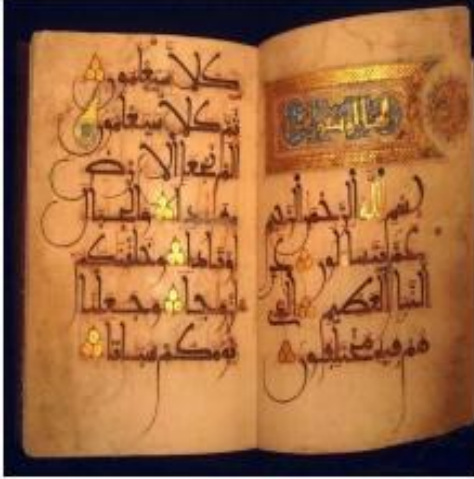 بسم الله الرحمن الرحيم
عم يتسالون عن
النبا العظيم الذي
هم فيه مختلفون
كلا سيعلمون
ثم كلا سيعلمون
الم نجعل الارض
والجبال
اوتادا وخلقنكم
ازوجا وجعلنا
نومكم سباتا